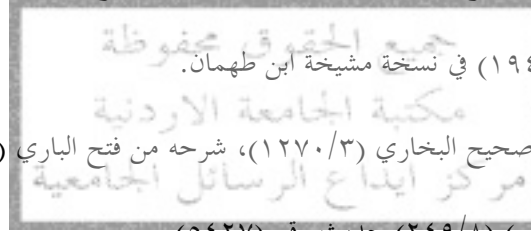 جميع الحقوق محفوظة
١٩٤) في نسخة مشيخة ابن طهمان.
مكتبة الجامعة الاردنية
صحيح البخاري (١٢٧٠/٣)، شرحه من فتح الباري (
مركز ايداع الرسائل الجامعية
(٢٤٩/٨)
(٥٤٢٧)